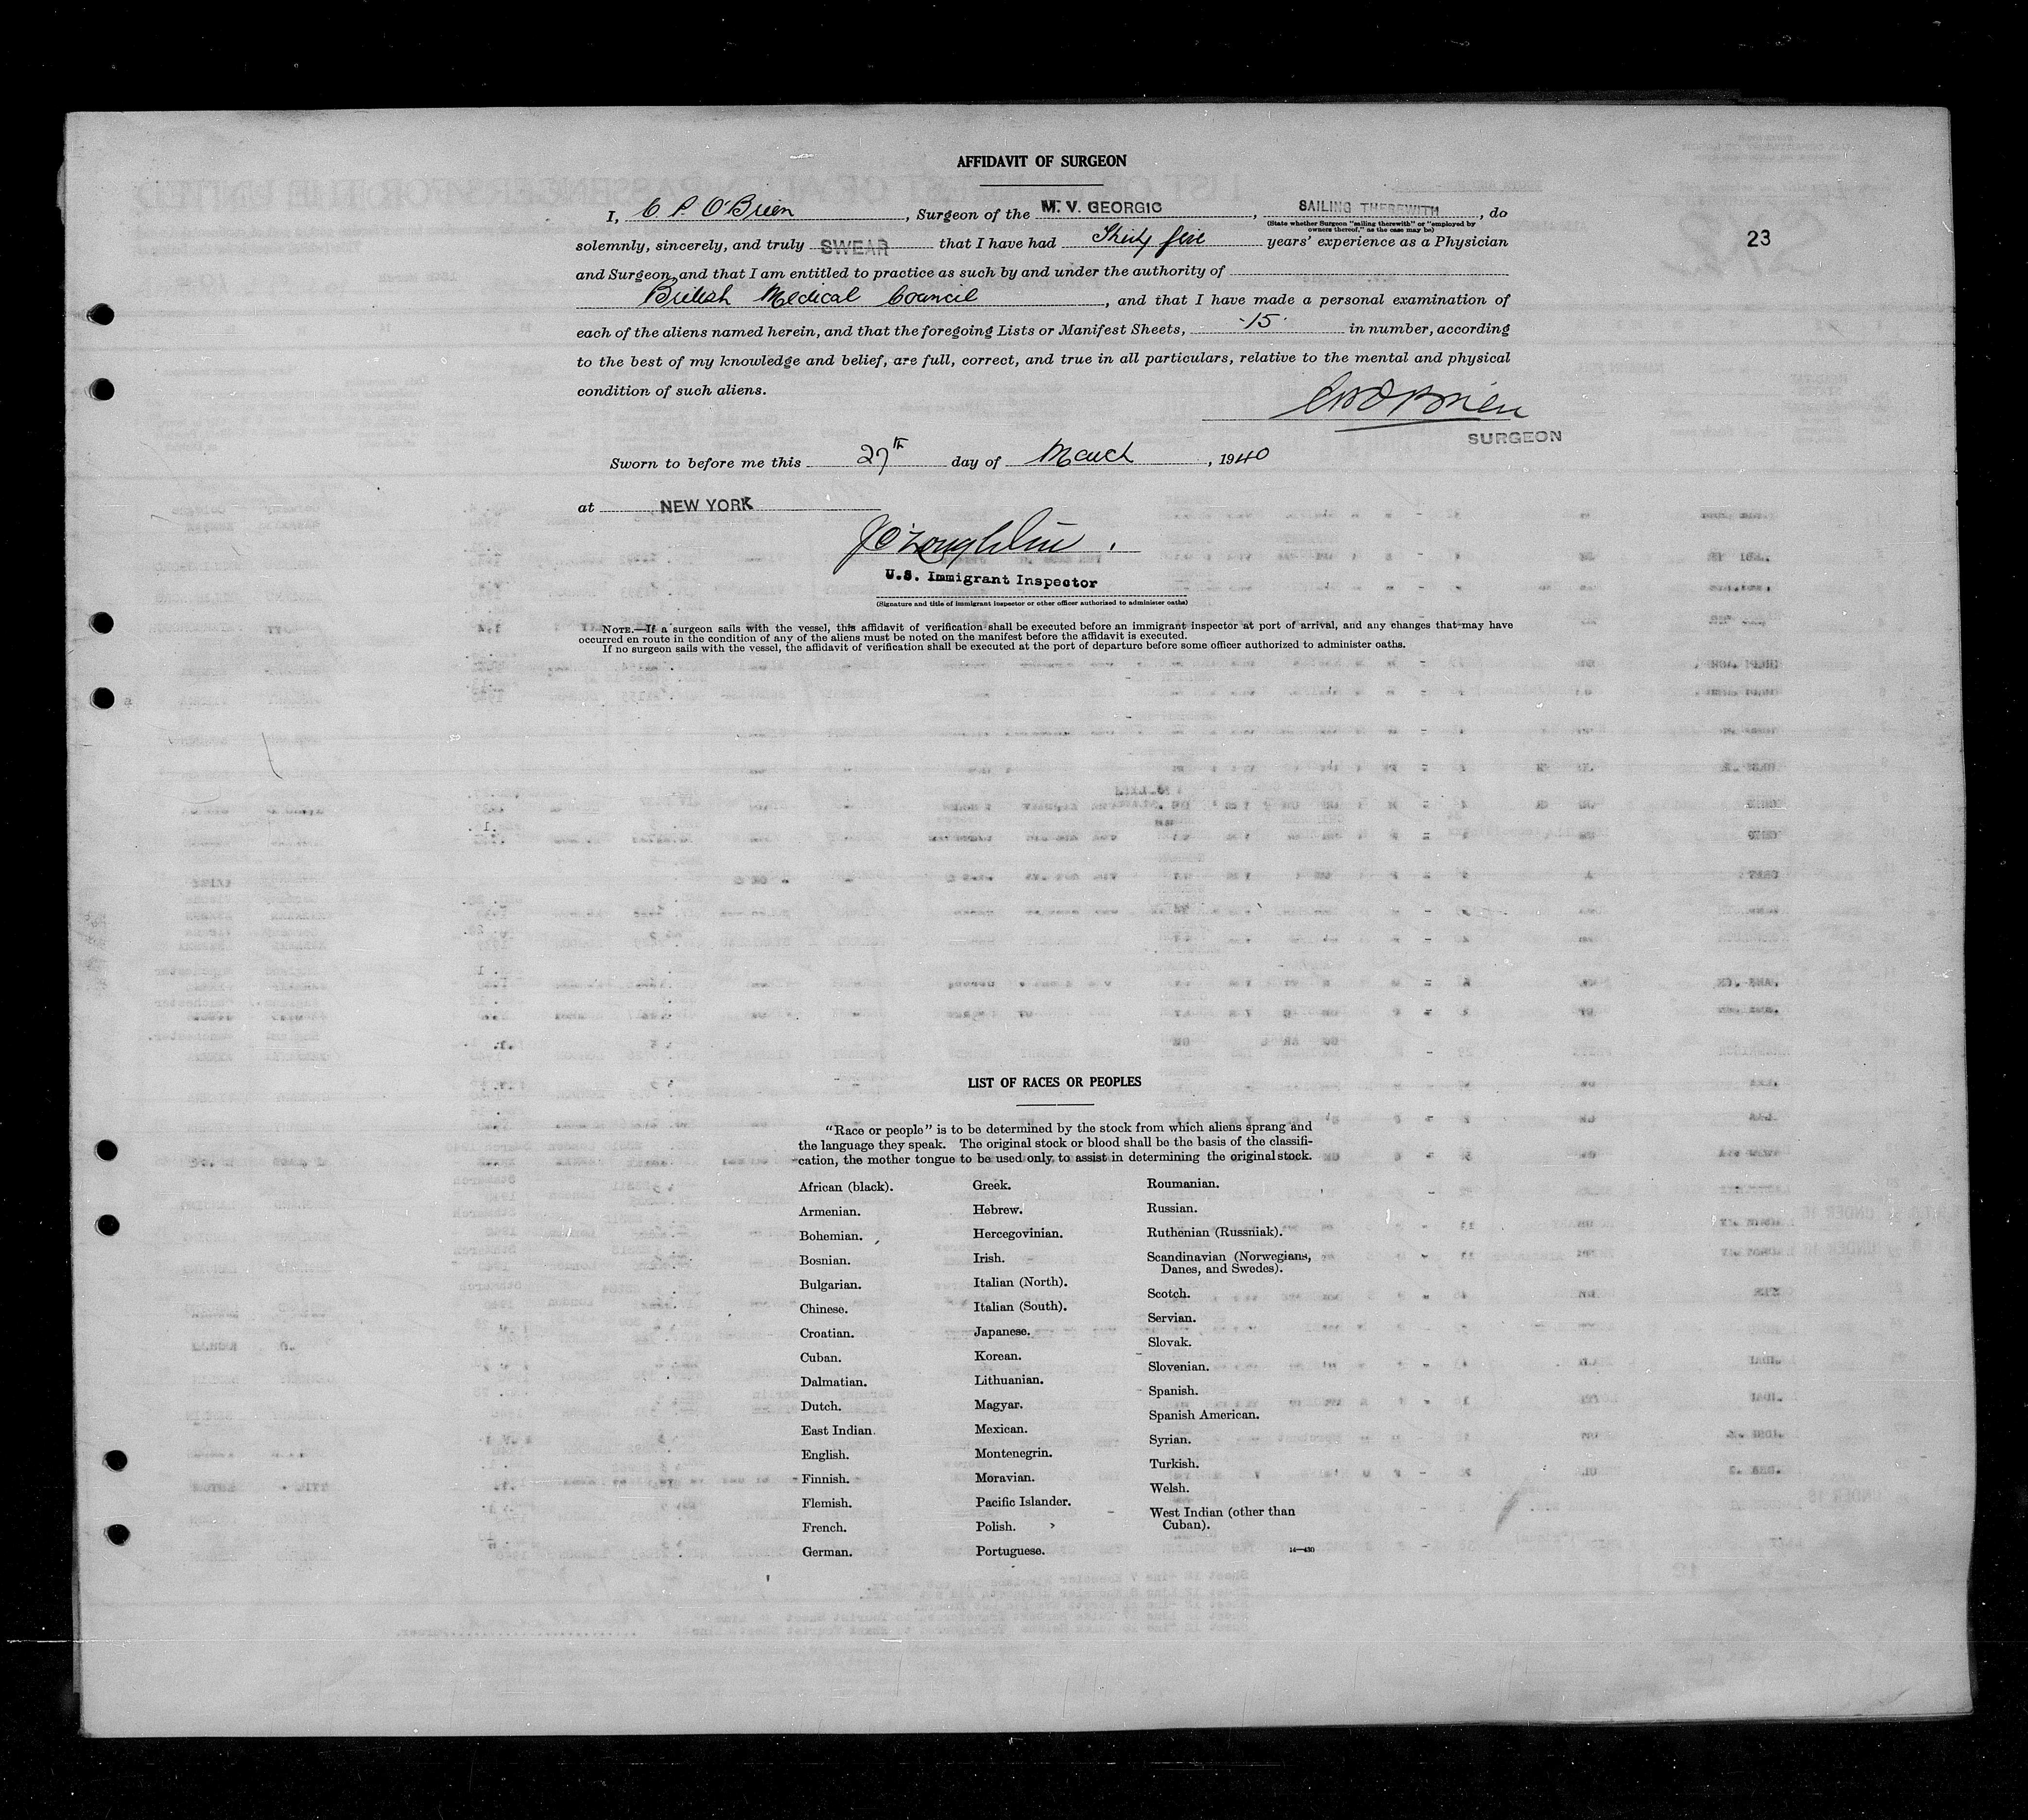 AFFIDAVIT OF SURGEON
I, C. P. O'Brien, Surgeon of the M. V. GEORGIC, SAILING THEREWITH, do
(State whether Surgeon "sailing therewith" or "employed by
owners thereof," as the case may be)
23
solemnly, sincerely, and truly SWEAR that I have had Thirty five years' experience as a Physician
and Surgeon, and that I am entitled to practice as such by and under the authority of
British Medical Council, and that I have made a personal examination of
each of the aliens named herein, and that the foregoing Lists or Manifest Sheets, 15 in number, according
to the best of my knowledge and belief, are full, correct, and true in all particulars, relative to the mental and physical
condition of such aliens.
CPO'Brien
SURGEON
Sworn to before me this 27th day of March, 1940
at NEW YORK
J O'Loughlin.
U.S. Immigrant Inspector
(Signature and title of immigrant inspector or other officer authorized to administer oaths)
NOTE.—If a surgeon sails with the vessel, this affidavit of verification shall be executed before an immigrant inspector at port of arrival, and any changes that may have
occurred en route in the condition of any of the aliens must be noted on the manifest before the affidavit is executed.
If no surgeon sails with the vessel, the affidavit of verification shall be executed at the port of departure before some officer authorized to administer oaths.
LIST OF RACES OR PEOPLES
"Race or people" is to be determined by the stock from which aliens sprang and
the language they speak. The original stock or blood shall be the basis of the classifi-
cation, the mother tongue to be used only to assist in determining the original stock.
African (black).
Armenian.
Bohemian.
Bosnian.
Bulgarian.
Chinese.
Croatian.
Cuban.
Dalmatian.
Dutch.
East Indian.
English.
Finnish.
Flemish.
French.
German.
Greek.
Hebrew.
Hercegovinian.
Irish.
Italian (North).
Italian (South).
Japanese.
Korean.
Lithuanian.
Magyar.
Mexican.
Montenegrin.
Moravian.
Pacific Islander.
Polish.
Portuguese.
Roumanian.
Russian.
Ruthenian (Russniak).
Scandinavian (Norwegians,
Danes, and Swedes).
Scotch.
Servian.
Slovak.
Slovenian.
Spanish.
Spanish American.
Syrian.
Turkish.
Welsh.
West Indian (other than
Cuban).
14—430